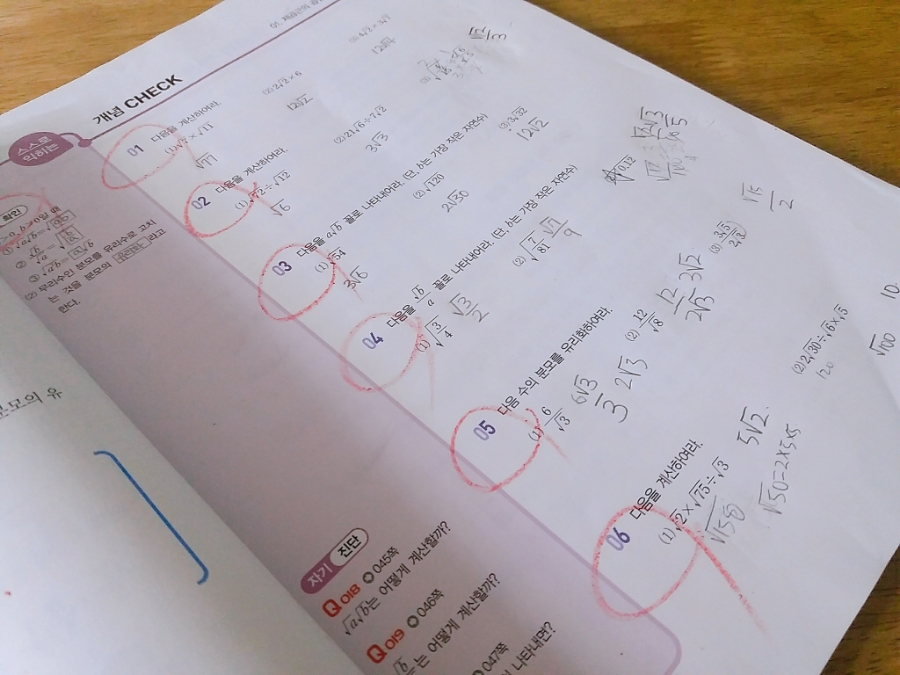 개념 CHECK
스스로
익히는
01 다음을 계산하여라.
(2) 2√2×6
12√2
√77
02 다음을 계산하여라.
(2) 21√6÷7√2
√6
3√3
03 다음을 a√b 꼴로 나타내어라. (단, b는 가장 작은 자연수)
(1) √54
(2) √120
(3) 3√32
3√6
2√30
12√2
04 다음을 √b/a 꼴로 나타내어라. (단, b는 가장 작은 자연수)
(1) √3/4
√3/2
(2) √7/81
√7/9
√0.12
05 다음 수의 분모를 유리화하여라.
(1) 6/√3
6√3/3
2√3
(2) 12/√8
12/2√3
3√2
(3) 3√5/2√3
√15/2
06 다음을 계산하여라.
(1) √2×√75÷√3
5√2
√50=2×5×5
(2) 2√30÷√6×√5
120
√100
10
확인
(2) 무리수인 분모를 유리수로 고치
는 것을 분모의 유리화 라고
한다.
분모의 유
자기 진단
Q 018 045쪽
√a√b는 어떻게 계산할까?
Q 019 046쪽
는 어떻게 계산할까?
047쪽
나타내면?